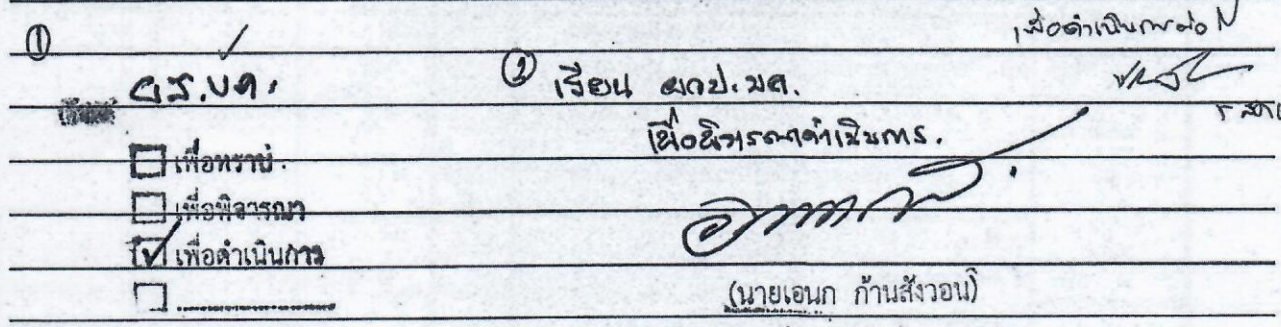 ①
เรียน ผส.บค.
เพื่อทราบ.
เพื่อพิจารณา
เพื่อดำเนินการ
② เรียน ผกป.บค.
เพื่อพิจารณาดำเนินการ.
(นายเอนก ก้านสังวอน)
เพื่อดำเนินการต่อไป